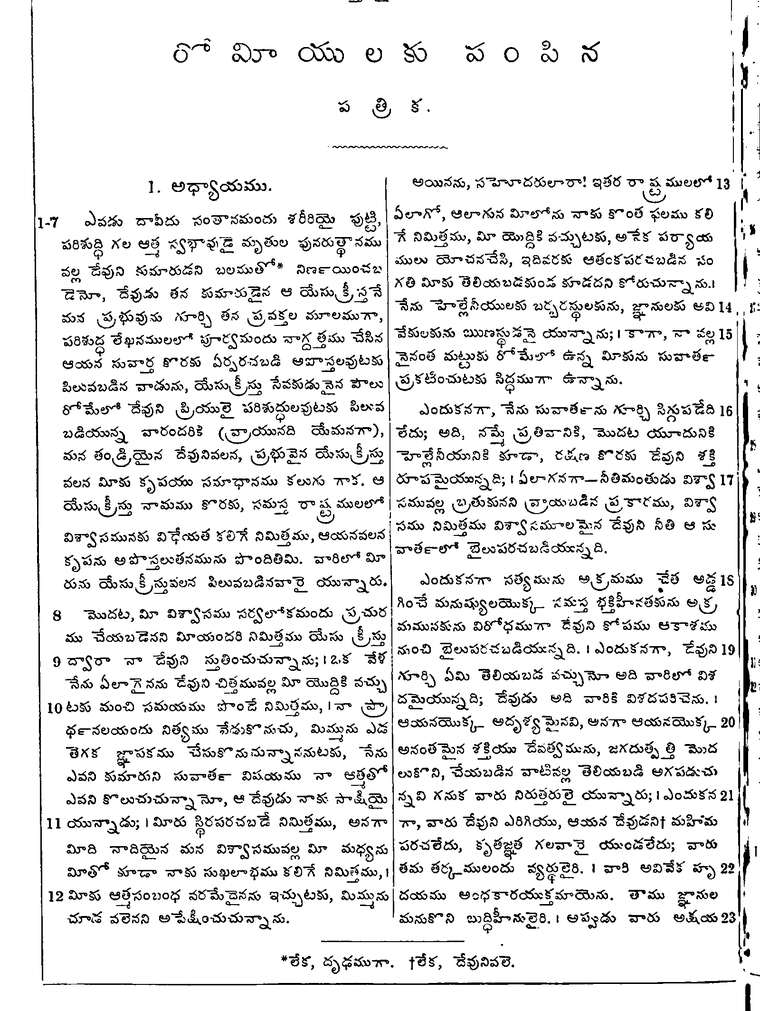 రోమీయులకు పంపిన
పత్రిక.
1. అధ్యాయము.
1-7 ఎవడు దావీదు సంతానమందు శరీరియై పుట్టి,
పరిశుద్ధి గల ఆత్మ స్వభావుడై మృతుల పునరుత్థానము
వల్ల దేవుని కుమారుడని బలముతో* నిర్ణయించబ
డెనో, దేవుడు తన కుమారుడైన ఆ యేసు క్రీస్తనే
మన ప్రభువును గూర్చి తన ప్రవక్తల మూలముగా,
పరిశుద్ధ లేఖనములలో పూర్వమందు వాగ్దత్తము చేసిన
ఆయన సువార్త కొరకు ఏర్పరచబడి అపొస్తలవుటకు
పిలువబడిన వాడును, యేసు క్రీస్తు సేవకుడునైన పౌలు
రోమేలో దేవుని ప్రియులై పరిశుద్ధులవుటకు పిలువ
బడియున్న వారందరికి (వ్రాయునది యేమనగా),
మన తండ్రియైన దేవునివలన, ప్రభువైన యేసు క్రీస్తు
వలన మీకు కృపయు సమాధానము కలుగు గాక. ఆ
యేసు క్రీస్తు నామము కొరకు, సమస్త రాష్ట్రములలో
విశ్వాసమునకు విధేయత కలిగే నిమిత్తము, ఆయనవలన
కృపను అపొస్తలుతనమును పొందితిమి. వారిలో మీ
రును యేసు క్రీస్తువలన పిలువబడినవారై యున్నారు.
8 మొదట, మీ విశ్వాసము సర్వలోకమందు ప్రచుర
ము చేయబడెనని మీయందరి నిమిత్తము యేసు క్రీస్తు
9 ద్వారా నా దేవుని స్తుతించుచున్నాను; । ఒక వేళ
నేను ఏలాగైనను దేవుని చిత్తమువల్ల మీ యొద్దికి వచ్చు
10 టకు మంచి సమయము పొందే నిమిత్తము, । నా ప్రా
ర్థనలయందు నిత్యము వేడుకొనుచు, మిమ్మును ఎడ
తెగక జ్ఞాపకము చేసుకొనుచున్నాననుటకు, నేను
ఎవని కుమారుని సువార్త విషయము నా ఆత్మతో
ఎవని కొలుచుచున్నానో, ఆ దేవుడు నాకు సాక్షియై
11 యున్నాడు; । మీరు స్థిరపరచబడే నిమిత్తము, అనగా
మీది నాదియైన మన విశ్వాసమువల్ల మీ మధ్యను
మీతో కూడా నాకు సుఖలాభము కలిగే నిమిత్తము, ।
12 మీకు ఆత్మసంబంధ వరమేదైనను ఇచ్చుటకు, మిమ్మును
చూడ వలెనని అపేక్షించుచున్నాను.
అయినను, సహోదరులారా! ఇతర రాష్ట్రములలో 13
ఏలాగో, ఆలాగున మీలోను నాకు కొంత ఫలము కలి
గే నిమిత్తము, మీ యొద్దికి వచ్చుటకు, అనేక పర్యాయ
ములు యోచనచేసి, ఇదివరకు ఆతంకపరచబడిన సం
గతి మీకు తెలియబడకుండ కూడదని కోరుచున్నాను. ।
నేను హెల్లేనీయులకు బర్బరస్థులకును, జ్ఞానులకు అవి 14
వేకులకును ఋణస్థుడనై యున్నాను; । కాగా, నా వల్ల 15
నైనంత మట్టుకు రోమేలో ఉన్న మీకును సువార్త
ప్రకటించుటకు సిద్ధముగా ఉన్నాను.
ఎందుకనగా, నేను సువార్తను గూర్చి సిగ్గుపడేది 16
లేదు; అది, నమ్మే ప్రతివానికి, మొదట యూదునికి
హెల్లేనీయునికి కూడా, రక్షణ కొరకు దేవుని శక్తి
రూపమైయున్నది; । ఏలాగనగా—నీతిమంతుడు విశ్వా 17
సమువల్ల బ్రతుకునని వ్రాయబడిన ప్రకారము, విశ్వా
సము నిమిత్తము విశ్వాసమూలమైన దేవుని నీతి ఆ సు
వార్తలో బైలుపరచబడియున్నది.
ఎందుకనగా సత్యమును అక్రమము చేత అడ్డ 18
గించే మనుష్యులయొక్క సమస్త భక్తిహీనతకును అక్ర
మమునకును విరోధముగా దేవుని కోపము ఆకాశము
నుంచి బైలుపరచబడియున్నది. । ఎందుకనగా, దేవుని 19
గూర్చి ఏమి తెలియబడ వచ్చునో అది వారిలో విశ
దమైయున్నది; దేవుడు అది వారికి విశదపరిచెను. ।
ఆయనయొక్క అదృశ్యమైనవి, అనగా ఆయనయొక్క 20
అనంతమైన శక్తియు దేవత్వమును, జగదుత్పత్తి మొద
లుకొని, చేయబడిన వాటివల్ల తెలియబడి అగపడుచు
న్నవి గనుక వారు నిరుత్తరులై యున్నారు; । ఎందుకన 21
గా, వారు దేవుని ఎరిగియు, ఆయన దేవుడని† మహిమ
పరచలేదు, కృతజ్ఞత గలవారై యుండలేదు; వారు
తమ తర్కములందు వ్యర్థులైరి. । వారి అవివేక హృ 22
దయము అంధకారయుక్తమాయెను. తాము జ్ఞానుల
మనుకొని బుద్ధిహీనులైరి. । అప్పుడు వారు అక్షయ 23
*లేక, దృఢముగా. †లేక, దేవునివలె.